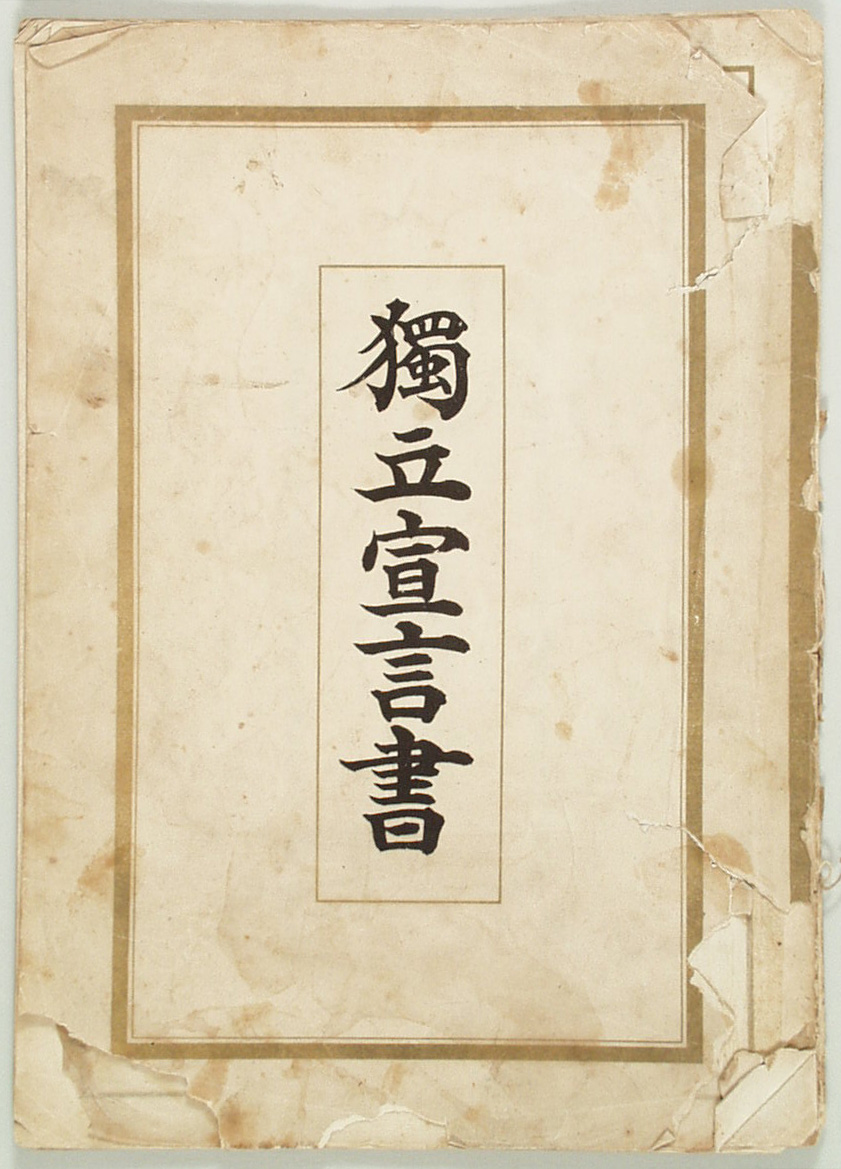 獨立宣言書